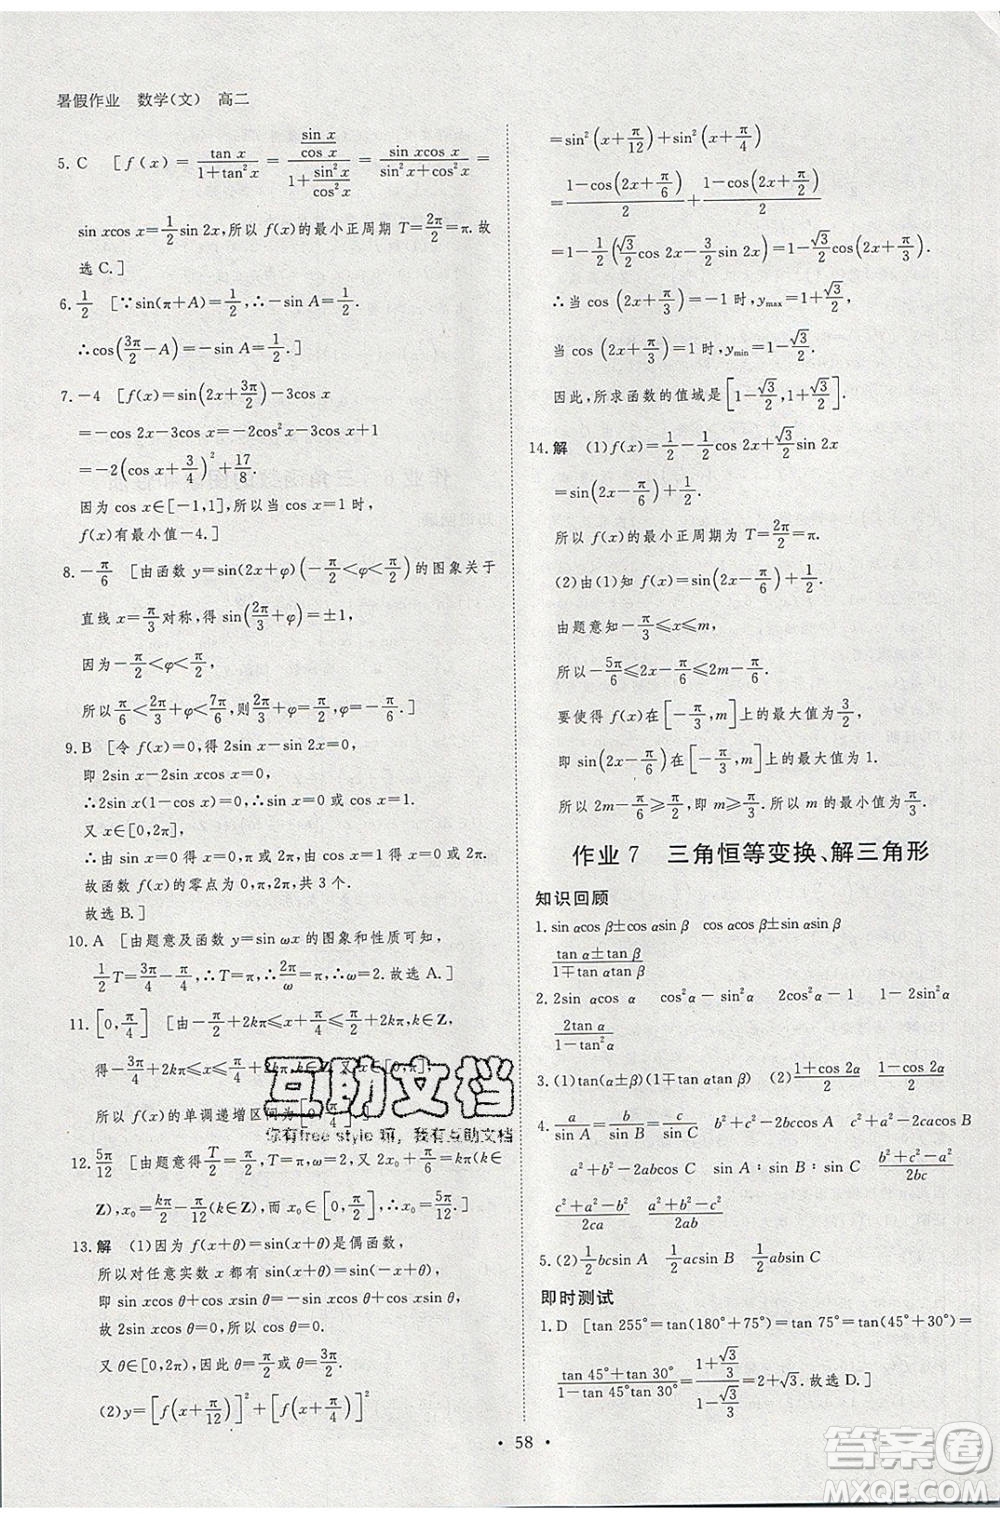 暑假作业 数学(文) 高二
5. C [f(x)=\frac{\tan x}{1+\tan^2 x}=\frac{\frac{\sin x}{\cos x}}{1+\frac{\sin^2 x}{\cos^2 x}}=\frac{\sin x\cos x}{\sin^2 x+\cos^2 x}=
sin xcos x=\frac{1}{2}sin 2x,所以 f(x)的最小正周期 T=\frac{2π}{2}=π. 故
选 C.]
6. \frac{1}{2} [∵sin(π+A)=\frac{1}{2},∴-sin A=\frac{1}{2}.
∴cos(\frac{3π}{2}-A)=-sin A=\frac{1}{2}.]
7. -4 [f(x)=sin(2x+\frac{3π}{2})-3cos x
=-cos 2x-3cos x=-2cos²x-3cos x+1
=-2(cos x+\frac{3}{4})²+\frac{17}{8}.
因为 cos x∈[-1,1],所以当 cos x=1 时,
f(x)有最小值-4.]
8. -\frac{π}{6} [由函数 y=sin(2x+φ)(-\frac{π}{2}<φ<\frac{π}{2})的图象关于
直线 x=\frac{π}{3}对称,得 sin(\frac{2π}{3}+φ)=±1.
因为-\frac{π}{2}<φ<\frac{π}{2},
所以\frac{π}{6}<\frac{2π}{3}+φ<\frac{7π}{6},则\frac{2π}{3}+φ=\frac{π}{2},φ=-\frac{π}{6}.]
9. B [令 f(x)=0,得 2sin x-sin 2x=0,
即 2sin x-2sin xcos x=0,
∴2sin x(1-cos x)=0,∴sin x=0 或 cos x=1.
又 x∈[0,2π],
∴由 sin x=0 得 x=0,π 或 2π,由 cos x=1 得 x=0 或 2π.
故函数 f(x)的零点为 0,π,2π,共 3 个.
故选 B.]
10. A [由题意及函数 y=sin ωx 的图象和性质可知,
\frac{1}{2}T=\frac{3π}{4}-\frac{π}{4},∴T=π,∴\frac{2π}{ω}=π,∴ω=2.故选 A.]
11. [0,\frac{π}{4}] [由-\frac{π}{2}+2kπ≤x+\frac{π}{4}≤\frac{π}{2}+2kπ,k∈Z,
得-\frac{3π}{4}+2kπ≤x≤\frac{π}{4}+2kπ,k∈Z.又 x∈[0,π],
所以 f(x)的单调递增区间为[0,\frac{π}{4}].]
12. \frac{5π}{12} [由题意得\frac{T}{2}=\frac{π}{2},T=π,ω=2.又 2x₀+\frac{π}{6}=kπ(k∈
Z),x₀=\frac{kπ}{2}-\frac{π}{12}(k∈Z),而 x₀∈[0,\frac{π}{2}],所以 x₀=\frac{5π}{12}.]
13. 解 (1)因为 f(x+θ)=sin(x+θ)是偶函数,
所以对任意实数 x 都有 sin(x+θ)=sin(-x+θ),
即 sin xcos θ+cos xsin θ=-sin xcos θ+cos xsin θ,
故 2sin xcos θ=0,所以 cos θ=0.
又 θ∈[0,2π),因此 θ=\frac{π}{2}或 θ=\frac{3π}{2}.
(2)y=[f(x+\frac{π}{12})]²+[f(x+\frac{π}{4})]²
=sin²(x+\frac{π}{12})+sin²(x+\frac{π}{4})
=\frac{1-cos(2x+\frac{π}{6})}{2}+\frac{1-cos(2x+\frac{π}{2})}{2}
=1-\frac{1}{2}(\frac{√3}{2}cos 2x-\frac{3}{2}sin 2x)=1-\frac{√3}{2}cos(2x+\frac{π}{3}).
∴当 cos(2x+\frac{π}{3})=-1 时,y_{max}=1+\frac{√3}{2},
当 cos(2x+\frac{π}{3})=1 时,y_{min}=1-\frac{√3}{2}.
因此,所求函数的值域是[1-\frac{√3}{2},1+\frac{√3}{2}].
14. 解 (1)f(x)=\frac{1}{2}-\frac{1}{2}cos 2x+\frac{√3}{2}sin 2x
=sin(2x-\frac{π}{6})+\frac{1}{2}.
所以 f(x)的最小正周期为 T=\frac{2π}{2}=π.
(2)由(1)知 f(x)=sin(2x-\frac{π}{6})+\frac{1}{2}.
由题意知-\frac{π}{3}≤x≤m,
所以-\frac{5π}{6}≤2x-\frac{π}{6}≤2m-\frac{π}{6}.
要使得 f(x)在[-\frac{π}{3},m]上的最大值为\frac{3}{2},
即 sin(2x-\frac{π}{6})在[-\frac{π}{3},m]上的最大值为 1.
所以 2m-\frac{π}{6}≥\frac{π}{2},即 m≥\frac{π}{3}.所以 m 的最小值为\frac{π}{3}.
作业 7 三角恒等变换、解三角形
知识回顾
1. sin αcos β±cos αsin β cos αcos β∓sin αsin β
\frac{tan α±tan β}{1∓tan αtan β}
2. 2sin αcos α cos²α-sin²α 2cos²α-1 1-2sin²α
\frac{2tan α}{1-tan²α}
3. (1)tan(α±β)(1∓tan αtan β) (2)\frac{1+cos 2α}{2} \frac{1-cos 2α}{2}
4. \frac{a}{sin A}=\frac{b}{sin B}=\frac{c}{sin C}=2R b²+c²-2bccos A c²+a²-2cacos B
a²+b²-2abcos C sin A∶sin B∶sin C \frac{b²+c²-a²}{2bc}
\frac{c²+a²-b²}{2ca} \frac{a²+b²-c²}{2ab}
5. (2)\frac{1}{2}bcsin A \frac{1}{2}acsin B \frac{1}{2}absin C
即时测试
1. D [tan 255°=tan(180°+75°)=tan 75°=tan(45°+30°)=
\frac{tan 45°+tan 30°}{1-tan 45°tan 30°}=\frac{1+\frac{√3}{3}}{1-\frac{√3}{3}}=2+√3.故选 D.]
• 58 •
互助文档
你有free style嘛,我有互助文档
答案圈
MXQE.COM